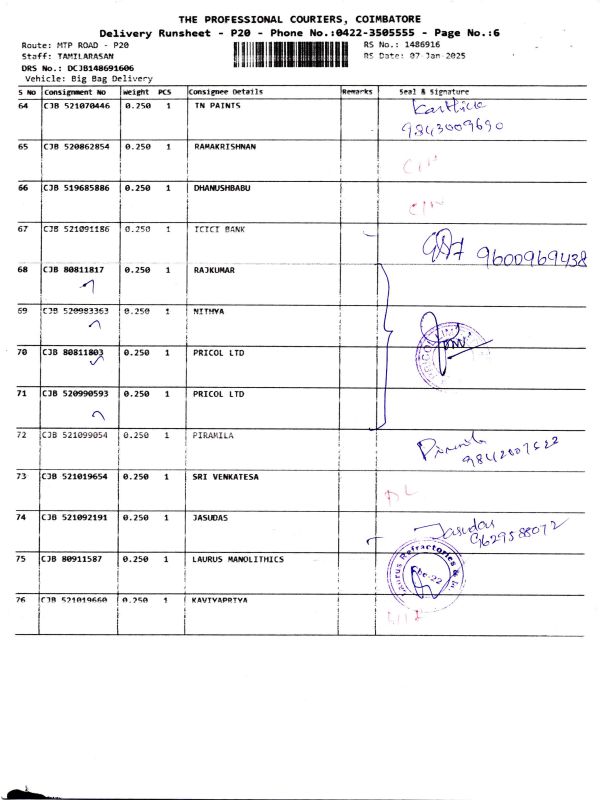 THE PROFESSIONAL COURIERS, COIMBATORE
Delivery Runsheet - P20 - Phone No.:0422-3505555 - Page No.:6
Route: MTP ROAD - P20 RS No.: 1486916
Staff: TAMILARASAN RS Date: 07-Jan-2025
DRS No.: DCJB148691606
Vehicle: Big Bag Delivery
S No Consignment No Weight PCS Consignee Details Remarks Seal & Signature
64 CJB 521070446 0.250 1 TN PAINTS Karthick
9843009690
65 CJB 520862854 0.250 1 RAMAKRISHNAN
66 CJB 519685886 0.250 1 DHANUSHBABU
67 CJB 521091186 0.250 1 ICICI BANK 9600969438
68 CJB 80811817 0.250 1 RAJKUMAR
69 CJB 520983363 0.250 1 NITHYA
70 CJB 80811803 0.250 1 PRICOL LTD
71 CJB 520990593 0.250 1 PRICOL LTD
72 CJB 521099054 0.250 1 PIRAMILA
73 CJB 521019654 0.250 1 SRI VENKATESA
74 CJB 521092191 0.250 1 JASUDAS Jasudas
9629588072
75 CJB 80911587 0.250 1 LAURUS MANOLITHICS Laurus Refractories &
76 CJB 521019660 0.250 1 KAVIYAPRIYA